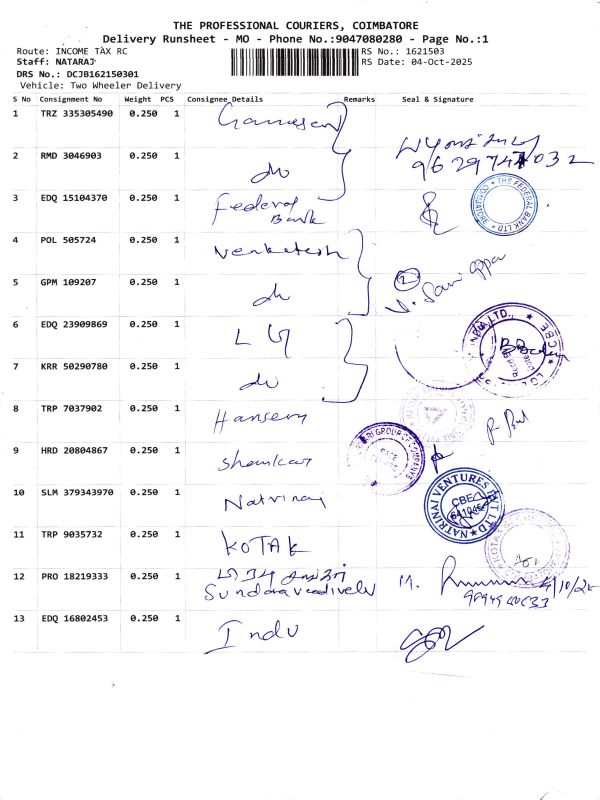 THE PROFESSIONAL COURIERS, COIMBATORE
Delivery Runsheet - MO - Phone No.:9047080280 - Page No.:1
Route: INCOME TAX RC
RS No.: 1621503
Staff: NATARAJ
RS Date: 04-Oct-2025
DRS No.: DCJB162150301
Vehicle: Two Wheeler Delivery
S No Consignment No Weight PCS Consignee Details Remarks Seal & Signature
1 TRZ 335305490 0.250 1
2 RMD 3046903 0.250 1 do
3 EDQ 15104370 0.250 1 Federal Bank
THE FEDERAL BANK LTD
4 POL 505724 0.250 1 Venkatesh
5 GPM 109207 0.250 1 do
6 EDQ 23909869 0.250 1 LG
7 KRR 50290780 0.250 1 do
8 TRP 7037902 0.250 1
9 HRD 20804867 0.250 1 Shankar
GROUP OF COMPANIES
10 SLM 379343970 0.250 1
NATRINAI VENTURES PVT LTD
CBE
11 TRP 9035732 0.250 1 KOTAK
12 PRO 18219333 0.250 1
Sundaravadivelu
13 EDQ 16802453 0.250 1 Indu